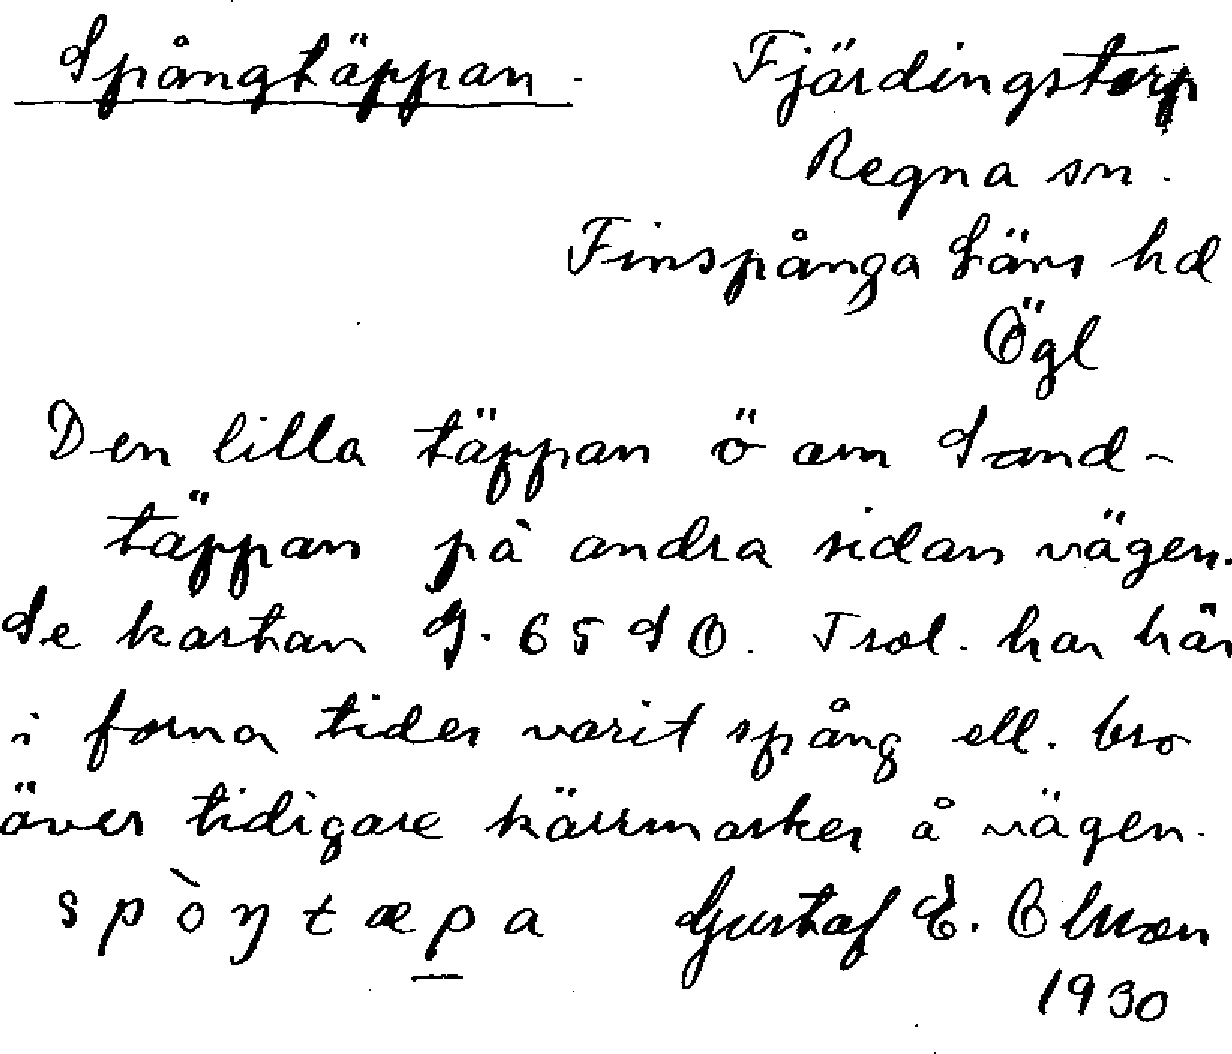 Spångtäppan.
Fjärdingstorp
Regna sn.
Finspånga läns hd
Ögl
Den lilla täppan ö om Sand-
täppan på andra sidan vägen.
Se kartan G. 65 SO. Trol. har här
i forna tider varit spång ell. bro
över tidigare kärrmarker å vägen.
spòŋtæpa
Gustaf E. Olsson
1930